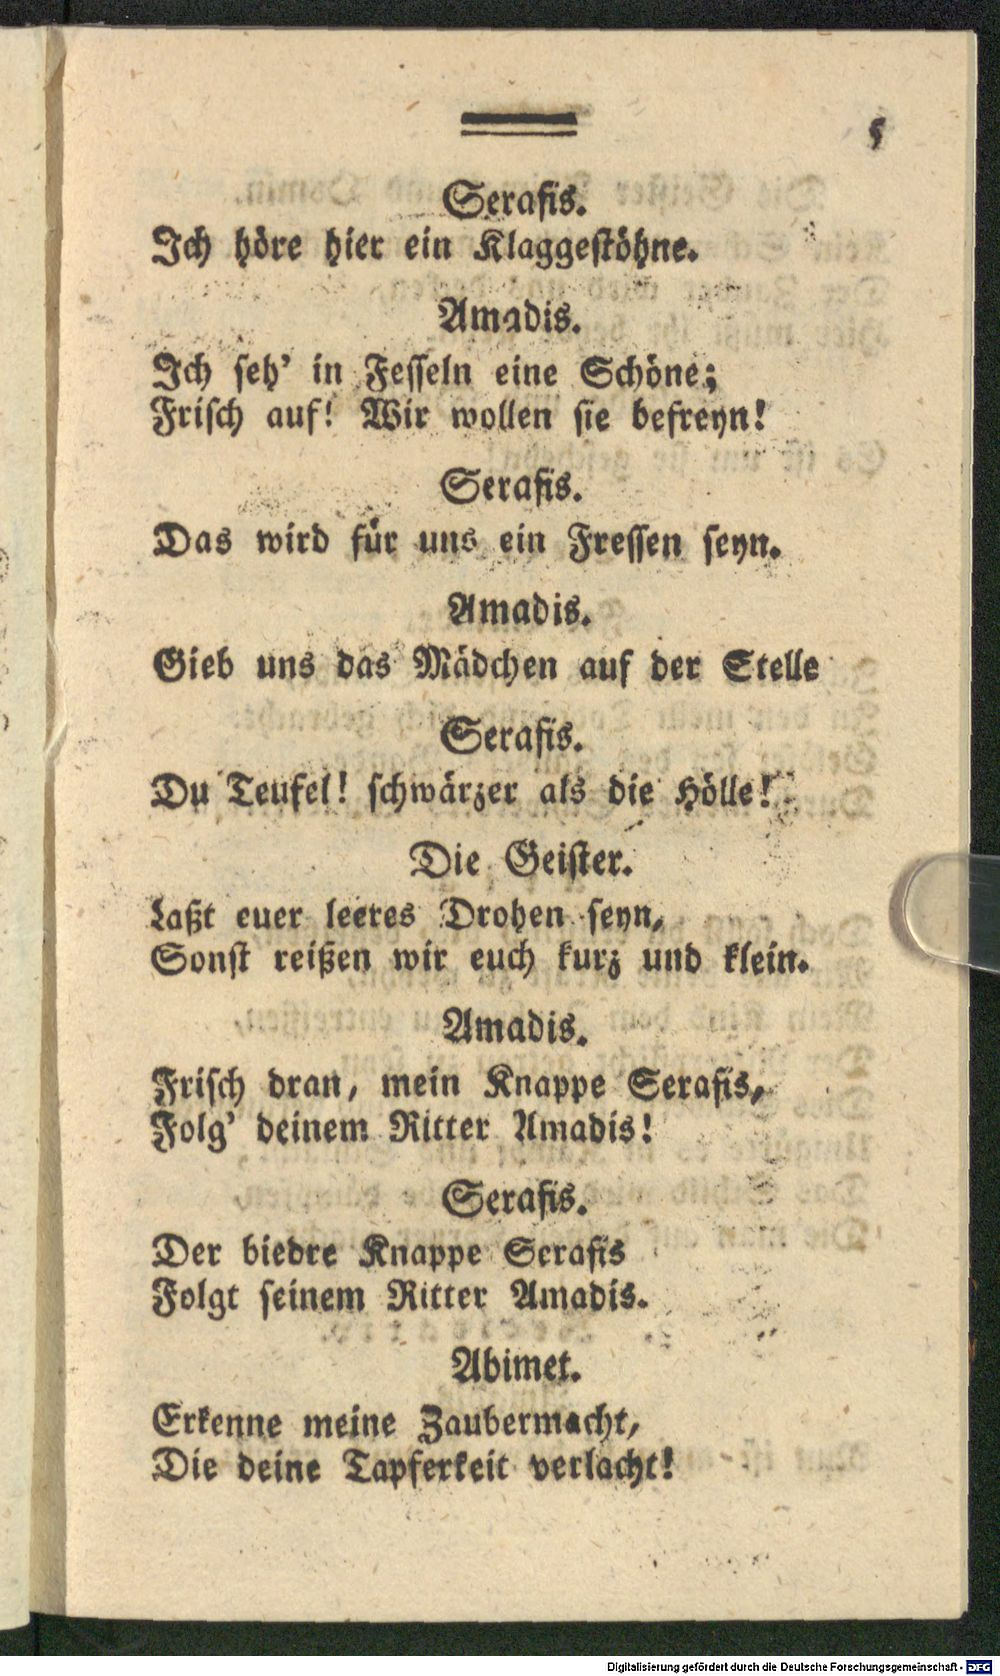 5
Serafis.
Ich höre hier ein Klaggestöhne.
Amadis.
Ich seh' in Fesseln eine Schöne;
Frisch auf! Wir wollen sie befreyn!
Serafis.
Das wird für uns ein Fressen seyn.
Amadis.
Gieb uns das Mädchen auf der Stelle
Serafis.
Du Teufel! schwärzer als die Hölle!
Die Geister.
Laßt euer leeres Drohen seyn,
Sonst reißen wir euch kurz und klein.
Amadis.
Frisch dran, mein Knappe Serafis,
Folg' deinem Ritter Amadis!
Serafis.
Der biedre Knappe Serafis
Folgt seinem Ritter Amadis.
Abimet.
Erkenne meine Zaubermacht,
Die deine Tapferkeit verlacht!
Digitalisierung gefördert durch die Deutsche Forschungsgemeinschaft - DFG